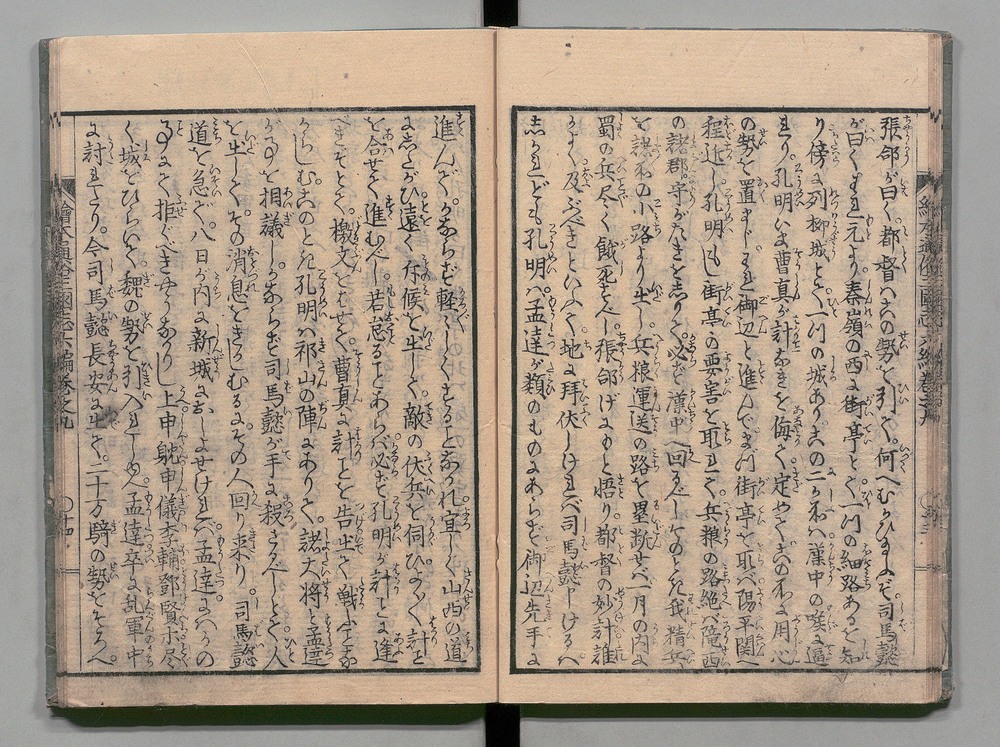 張郃が曰く。都督ハ今この勢を引て。何へむかひ玉ふぞ司馬懿
が曰くそれ元より秦嶺の西に街亭とて一ツの細路あるを知
り傍に列柳城とて一ツの城あり此の二か所ハ漢中の咲に逼
れり。孔明いま曹真が計なきを侮て定やて此の所に用心
の勢を置まじそれ御辺と進んでまづ街亭を取バ陽平関へ
程近し孔明もし街亭の要害を取れて兵粮の路絶バ隴西
の諸郡守がたきを志りて。必ず漢中へ回るべしそのとき我精兵
を 小路より出し兵粮運送の路を塁断せバ一月の内に
蜀の兵尽く餓死すべし。張郃げにもと悟り都督の妙計誰
かよく及ぶべきといふて地に拝伏しけれバ司馬懿申けるハ
志かれども孔明ハ孟達が類のものにあらず御辺先手に
進んで。かならず軽〳〵しくすることなかれ宜しく山西の道
に志たがひ遠く斥候を出して敵の伏兵を伺ひよく〳〵計を
を合せて進むべし若怠ることあらバ必ず孔明が計に逢
べきぞとて。檄文をはせて曹真に計ごとを告出て戦ふことな
からしむ此のとき孔明ハ祁山の陣にありて。諸大将と孟達
が事を相議しかならず司馬懿が手に殺さるべしとて人
を出してその消息をきかしむるにその人回り来り。司馬懿
道を急ぎ。八日が内に新城におしよせけれバ孟達にハかの
事にて拒ぐべきやうなかりし上申躭申儀李輔鄧賢ホ尽
く城をひらいて魏の勢を引入れしかバ孟達卒に乱軍の中
に討れたり。今司馬懿長安に出て。二十万騎の勢をそろへ
繪本通俗三國志六編巻之九 〇十四